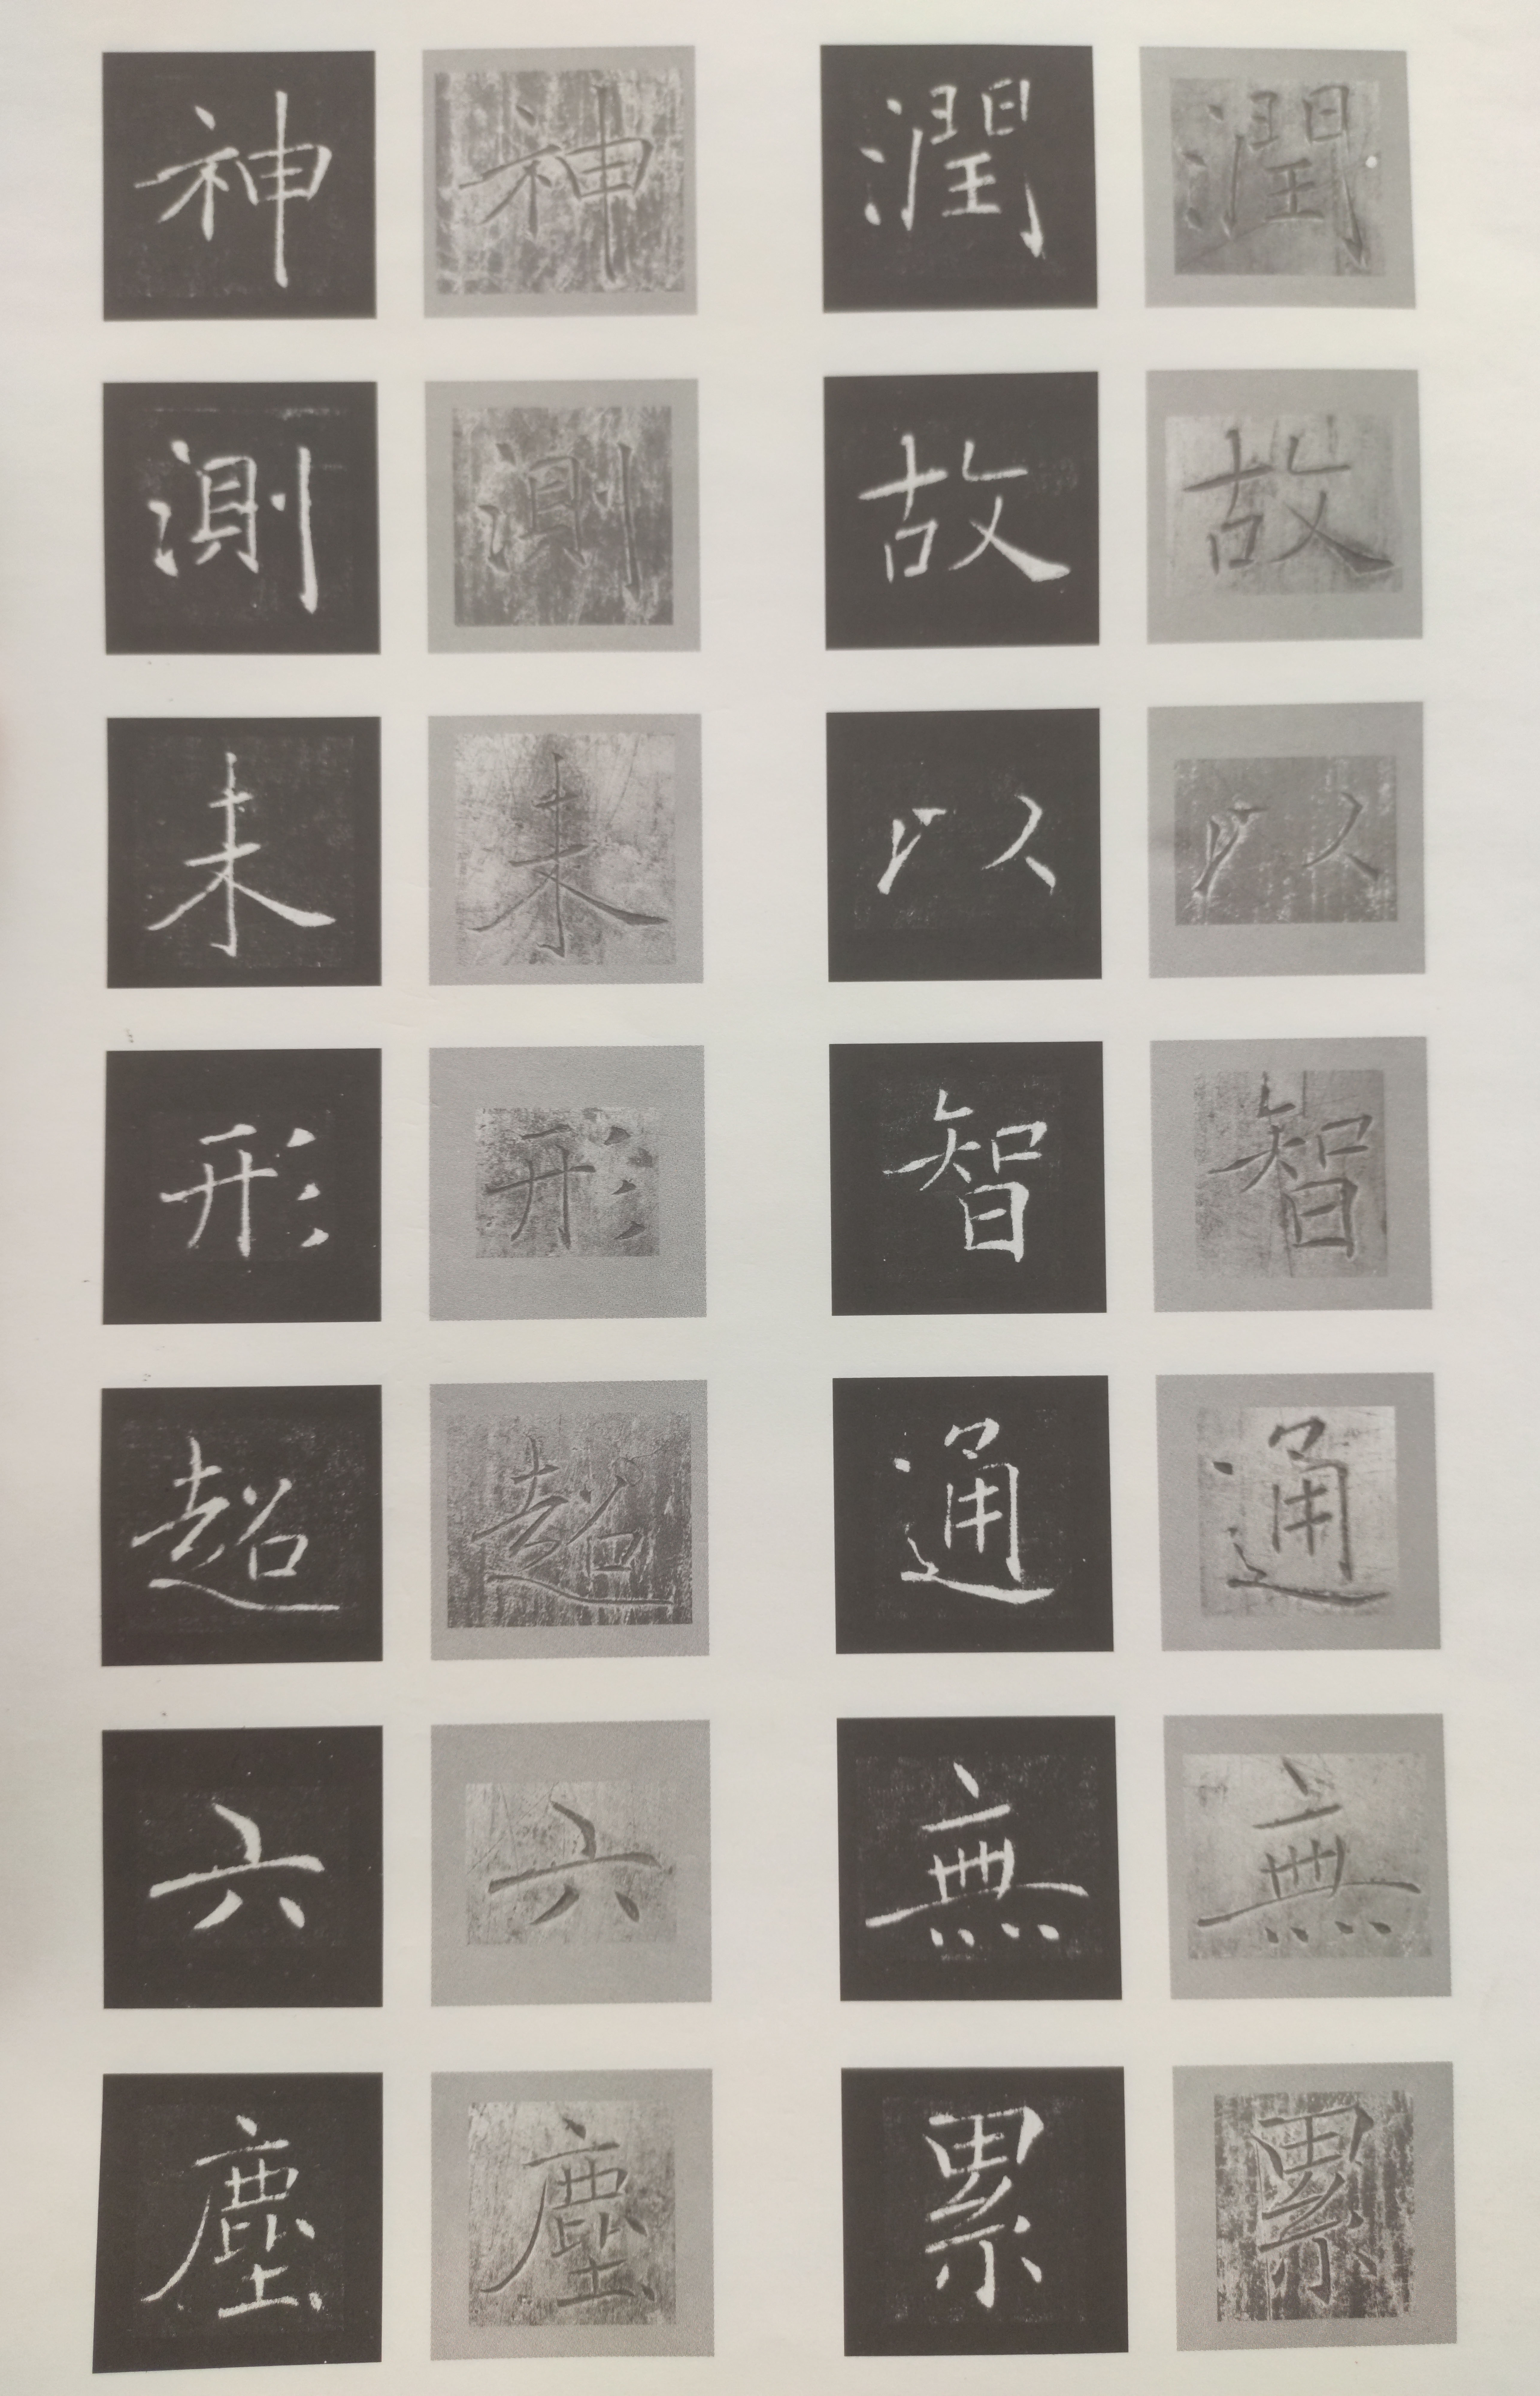 潤故以智通無累
潤故以智通無累
神測未形超六塵
神測未形超六塵